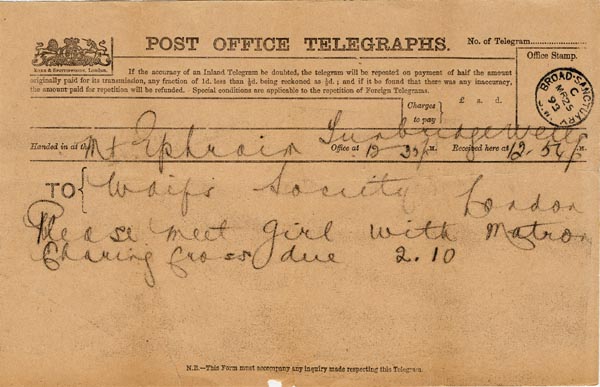 POST OFFICE TELEGRAPHS.
No. of Telegram
Office Stamp.
EYRE & SPOTTISWOODE, London.
If the accuracy of an Inland Telegram be doubted, the telegram will be repeated on payment of half the amount
originally paid for its transmission, any fraction of 1d. less than ½d. being reckoned as ½d.; and if it be found that there was any inaccuracy,
the amount paid for repetition will be refunded. Special conditions are applicable to the repetition of Foreign Telegrams.
BROAD-SANCTUARY
C
MR 25
93
Charges to pay
£ s. d.
Handed in at the Mt Ephraim Tunbridge Wells Office at 12-35 p M. Received here at 12.54 p M.
TO { Waifs Society London
Please meet girl with Matron
Charing Cross due 2.10
N.B.—This Form must accompany any inquiry made respecting this Telegram.